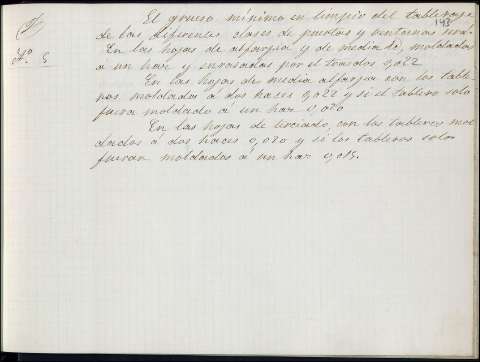 El grueso mínimo en limpio del tablerage
de las diferentes clases de puertas y ventanas será.
En las hojas de alfargia y de media id, moldadas
a un haz y enrasadas por el trasdos 0,022
En las hojas de media alfargia con los table-
ros moldados á dos haces 0,022 y si el tablero solo
fuera moldado á un haz 0,020
En las hojas de terciado, con los tableros mol
dados á dos haces 0,020 y si los tableros solo
fueran moldados á un haz 0,015.
Fº 5